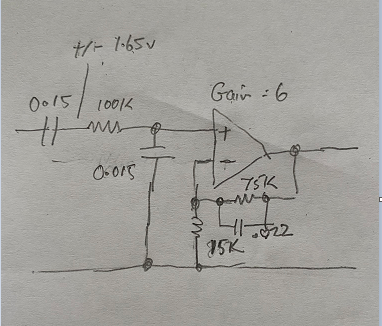 +/- 1.65v
Gain = 6
0.015
100K
+
0.015
-
75K
.022
15K